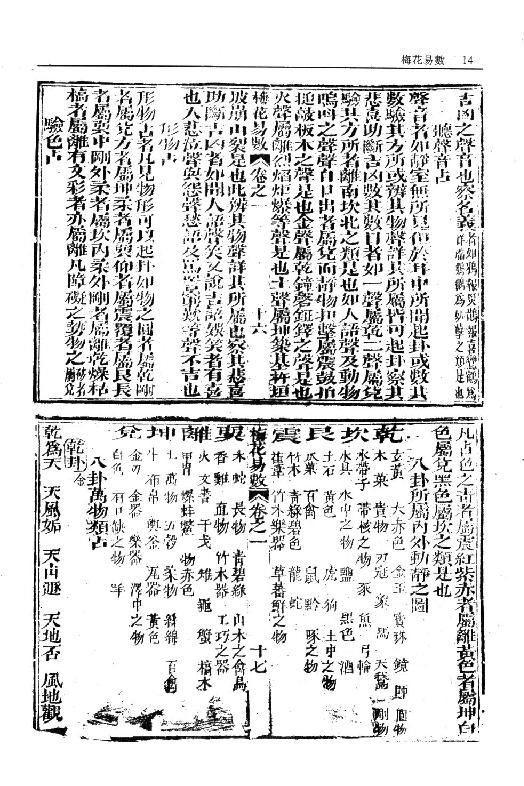 梅花易數 14
吉凶之聲音也察名義
聽聲音占
聲音者如靜室無所見但於耳中所聞起卦或數其
數驗其方所或辨其物聲詳其所屬皆可起卦察其
悲喜助斷吉凶數其數目者如一聲屬乾二聲屬兌
驗其方所者離南坎北之類是也如人語聲及動物
鳴叫之聲聲自口出者屬兌而靜物扣擊屬震鼓拍
槌敲板木之聲是也金聲屬乾鐘聲鉦鐸之聲是也
火聲屬離烈焰炬爆等聲是也土聲屬坤築基杵垣
梅花易數 卷之一 十六
坡崩山裂是也此辨其物聲詳其所屬也察其悲喜
助斷吉凶者如聞人語聲笑又說吉語娛笑者有喜
也人悲泣聲與怨聲愁語及罵詈窮歎等聲不吉也
形物占
形物占者凡見物形可以起卦如物之圓者屬乾剛
者屬兌方者屬坤柔者屬巽仰者屬震覆者屬艮長
者屬巽中剛外柔者屬坎內柔外剛者屬離乾燥枯
槁者屬離有文彩者亦屬離凡障礙之勢物之
驗色占
凡占色之吉者屬震紅紫赤者屬離黃色者屬坤白
色屬兌黑色屬坎之類是也
八卦所屬內外動靜之圖
乾 玄黃 大赤色 金玉 寶珠 鏡 獅 圓物
木果 貴物 刀冠 象 馬 天鵝 剛物
坎 水帶子 帶核之物 豕 魚 弓輪
水具 水中之物 鹽 黑色 酒
艮 土石 黃色 虎 狗 土中之物
瓜果 百禽 鼠 黔 啄之物
震 竹木 青綠碧色 龍 蛇
萑葦 竹木樂器 草蕃鮮之物
梅花易數 卷之一 十七
巽 木 蛇 長物 青碧綠 山木之禽鳥
香 雞 直物 竹木器 工巧之器
離 火 文書 干戈 雉 龜 蟹 槁木
甲冑 螺 蚌 鱉 物赤色
坤 土 萬物 五穀 柔物 絲綿 百禽
牛 布帛 輿 釜 瓦器 黃色
兌 金刃 金器 樂器 澤中之物
白色 有口缺之物 羊
八卦萬物類占
乾卦 金
乾為天 天風姤 天山遯 天地否 風地觀